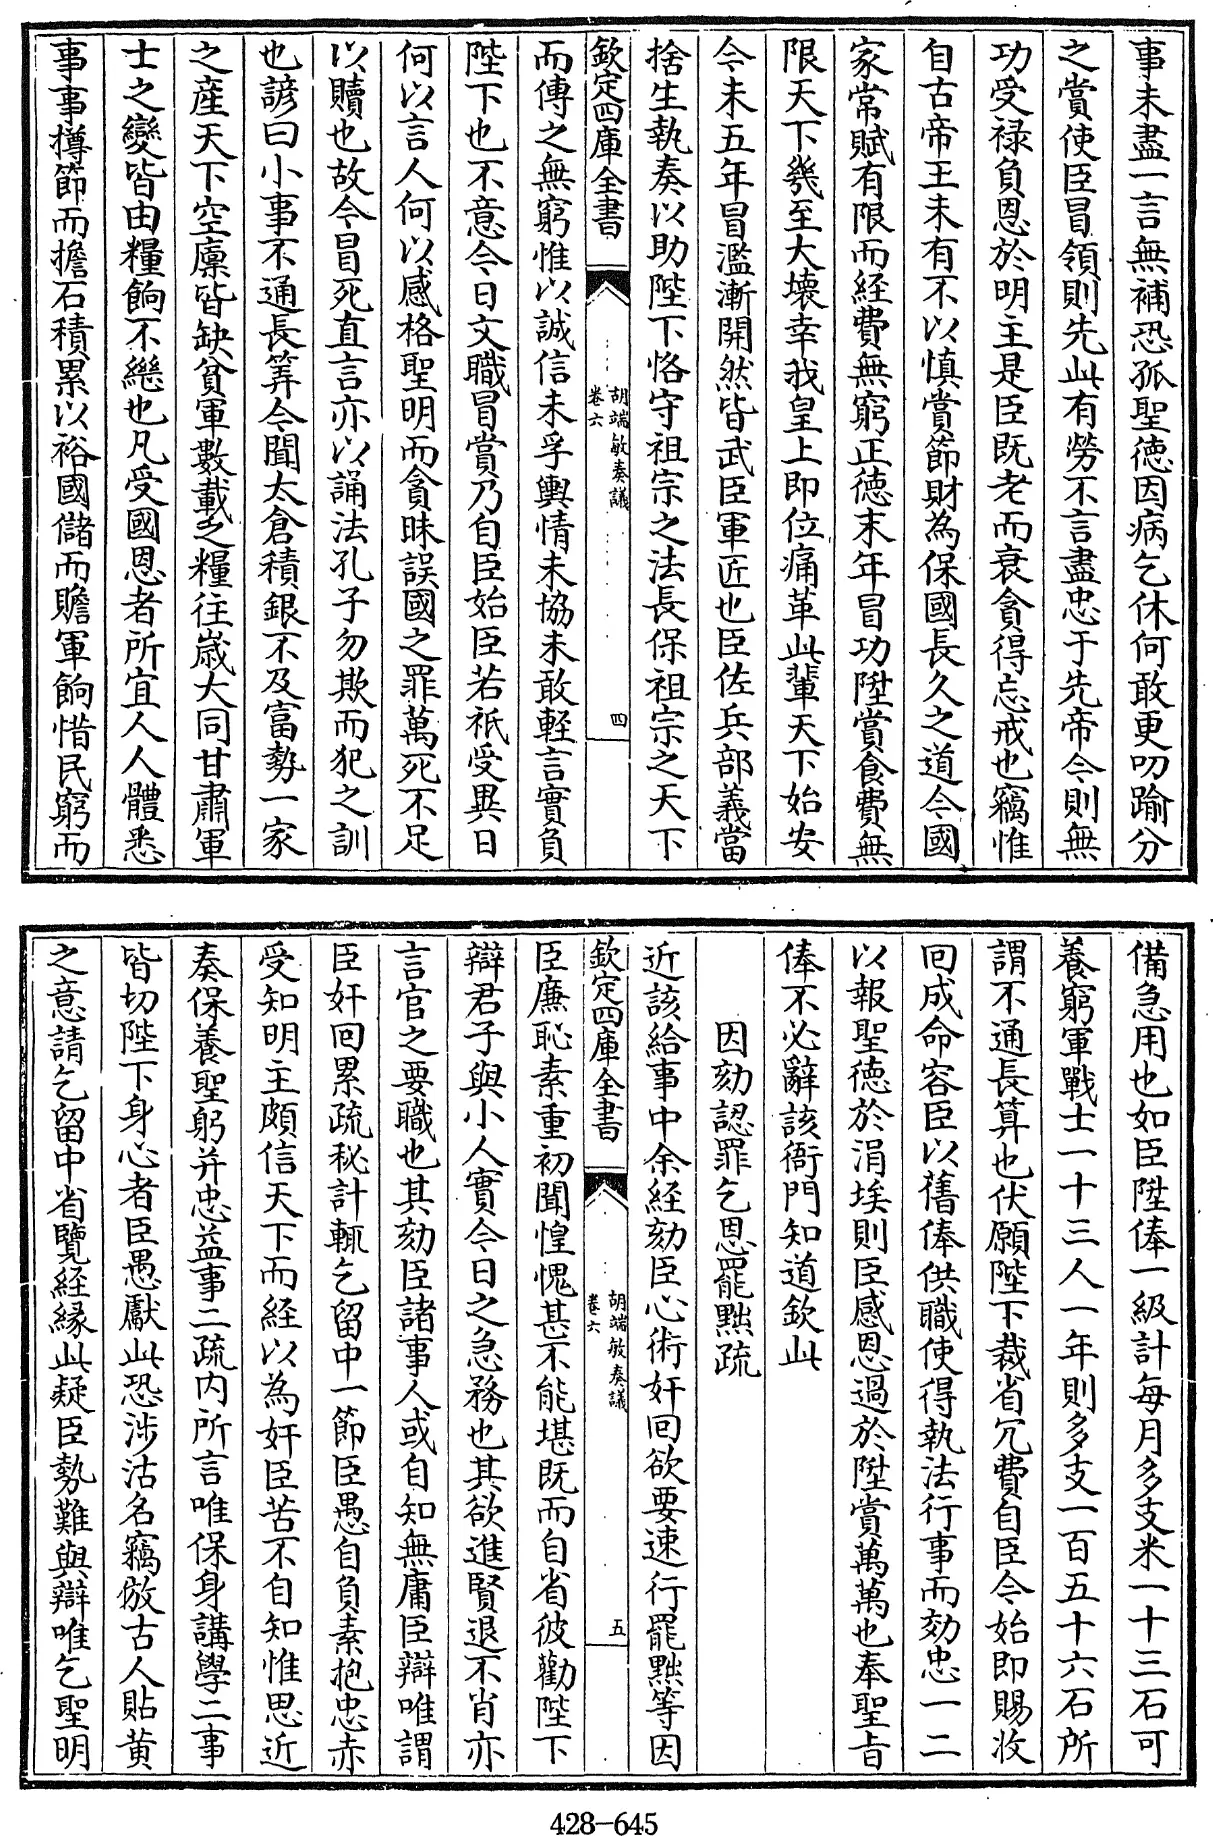 事未盡一言無補恐孤聖德因病乞休何敢更叨踰分
之賞使臣冒領則先此有勞不言盡忠于先帝今則無
功受祿負恩於明主是臣既老而衰貪得忘戒也竊惟
自古帝王未有不以慎賞節財為保國長久之道今國
家常賦有限而經費無窮正德末年冒功陞賞食費無
限天下幾至大壞幸我皇上即位痛革此輩天下始安
今未五年冒濫漸開然皆武臣軍匠也臣佐兵部義當
捨生執奏以助陛下恪守祖宗之法長保祖宗之天下
欽定四庫全書
胡端敏奏議
卷六
四
而傳之無窮惟以誠信未孚輿情未協未敢輕言實負
陛下也不意今日文職冒賞乃自臣始臣若祇受異日
何以言人何以感格聖明而貪昧誤國之罪萬死不足
以贖也故今冒死直言亦以誦法孔子勿欺而犯之訓
也諺曰小事不通長筭今聞太倉積銀不及富勢一家
之産天下空廪皆缺貧軍數載之糧往嵗大同甘肅軍
士之變皆由糧餉不繼也凡受國恩者所宜人人體悉
事事撙節而擔石積累以裕國儲而贍軍餉惜民窮而
備急用也如臣陞俸一級計每月多支米一十三石可
養窮軍戰士一十三人一年則多支一百五十六石所
謂不通長算也伏願陛下裁省冗費自臣今始即賜收
回成命容臣以舊俸供職使得執法行事而効忠一二
以報聖德於涓埃則臣感恩過於陞賞萬萬也奉聖旨
俸不必辭該衙門知道欽此
因劾認罪乞恩罷黜疏
近該給事中余經劾臣心術奸回欲要速行罷黜等因
欽定四庫全書
胡端敏奏議
卷六
五
臣廉恥素重初聞惶愧甚不能堪既而自省彼勸陛下
辯君子與小人實今日之急務也其欲進賢退不肖亦
言官之要職也其劾臣諸事人或自知無庸臣辯唯謂
臣奸回累疏秘計輒乞留中一節臣愚自負素抱忠赤
受知明主頗信天下而經以為奸臣苦不自知惟思近
奏保養聖躬并忠益事二疏内所言唯保身講學二事
皆切陛下身心者臣愚獻此恐涉沽名竊倣古人貼黄
之意請乞留中省覽經縁此疑臣勢難與辯唯乞聖明
428-645